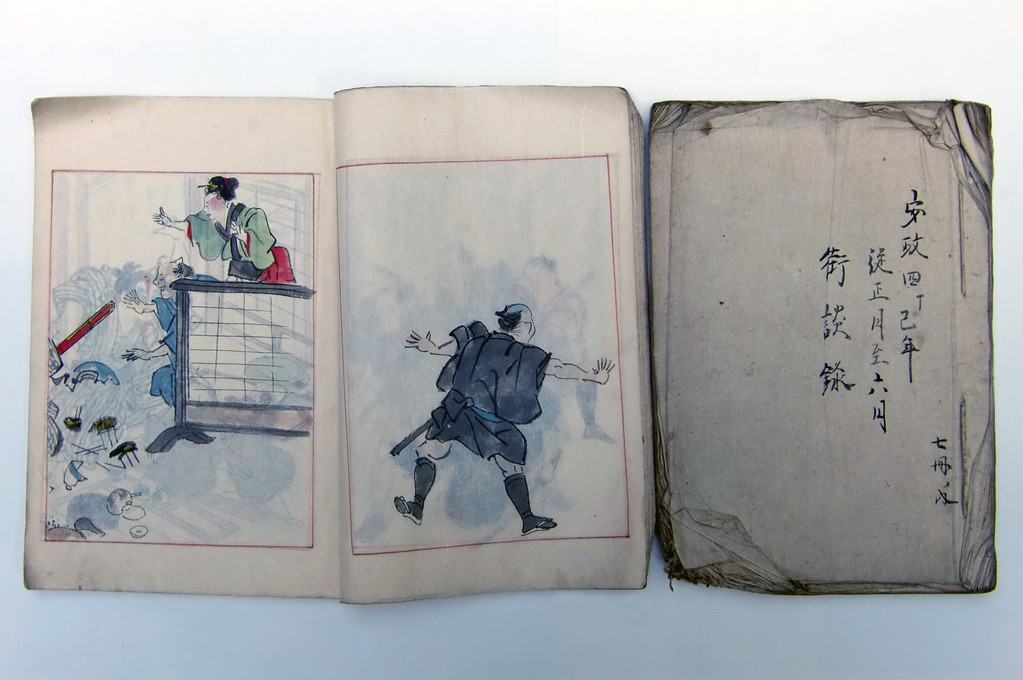 安政四丁巳年
従正月至六月
街談録
七冊之